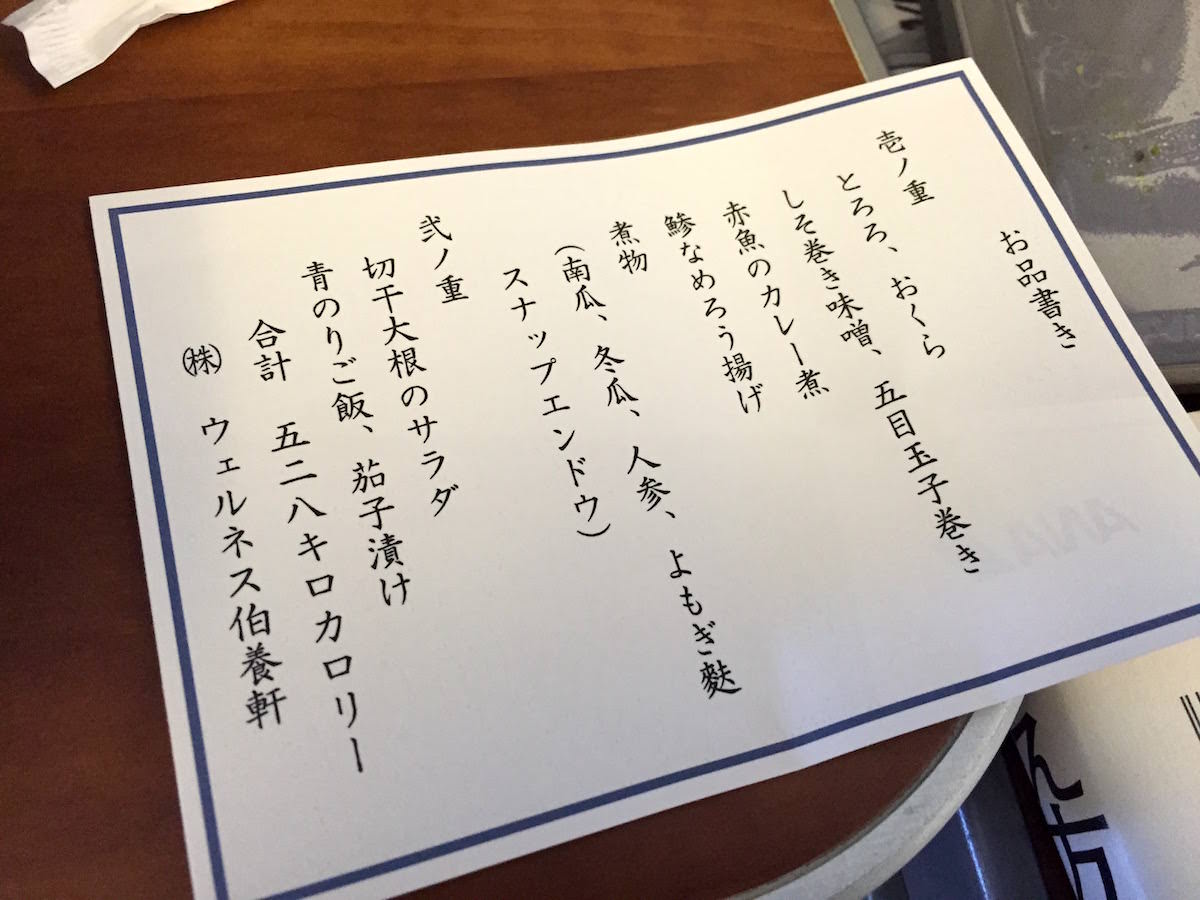 お品書き
壱ノ重
とろろ、おくら
しそ巻き味噌、五目玉子巻き
赤魚のカレー煮
鯵なめろう揚げ
煮物
(南瓜、冬瓜、人参、よもぎ麩
スナップエンドウ)
弐ノ重
切干大根のサラダ
青のりご飯、茄子漬け
合計 五二八キロカロリー
㈱ ウェルネス伯養軒